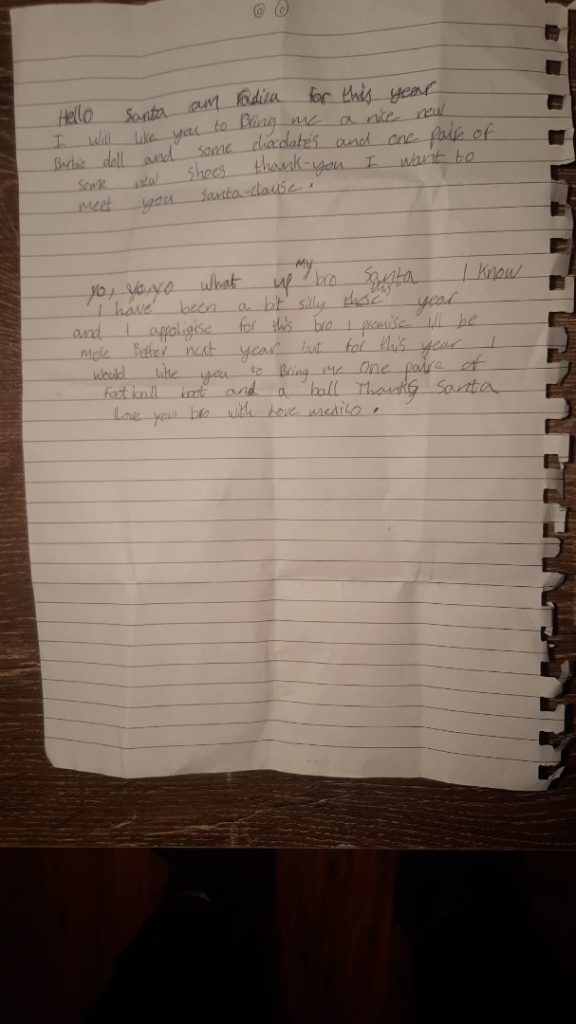 Hello Santa am radica for this year
I will like you to Bring me a nice new
Barbie doll and some chocolates and one paire of
some new shoes thank-you I want to
meet you santa-clause.
yo, yo, yo what up my bro Santa I know
I have been a bit silly this year
and I appoligise for this bro I promise i'll be
more Better next year but for this year I
would like you to Bring me one paire of
football boot and a ball Thanks Santa
love you bro with love mexico.